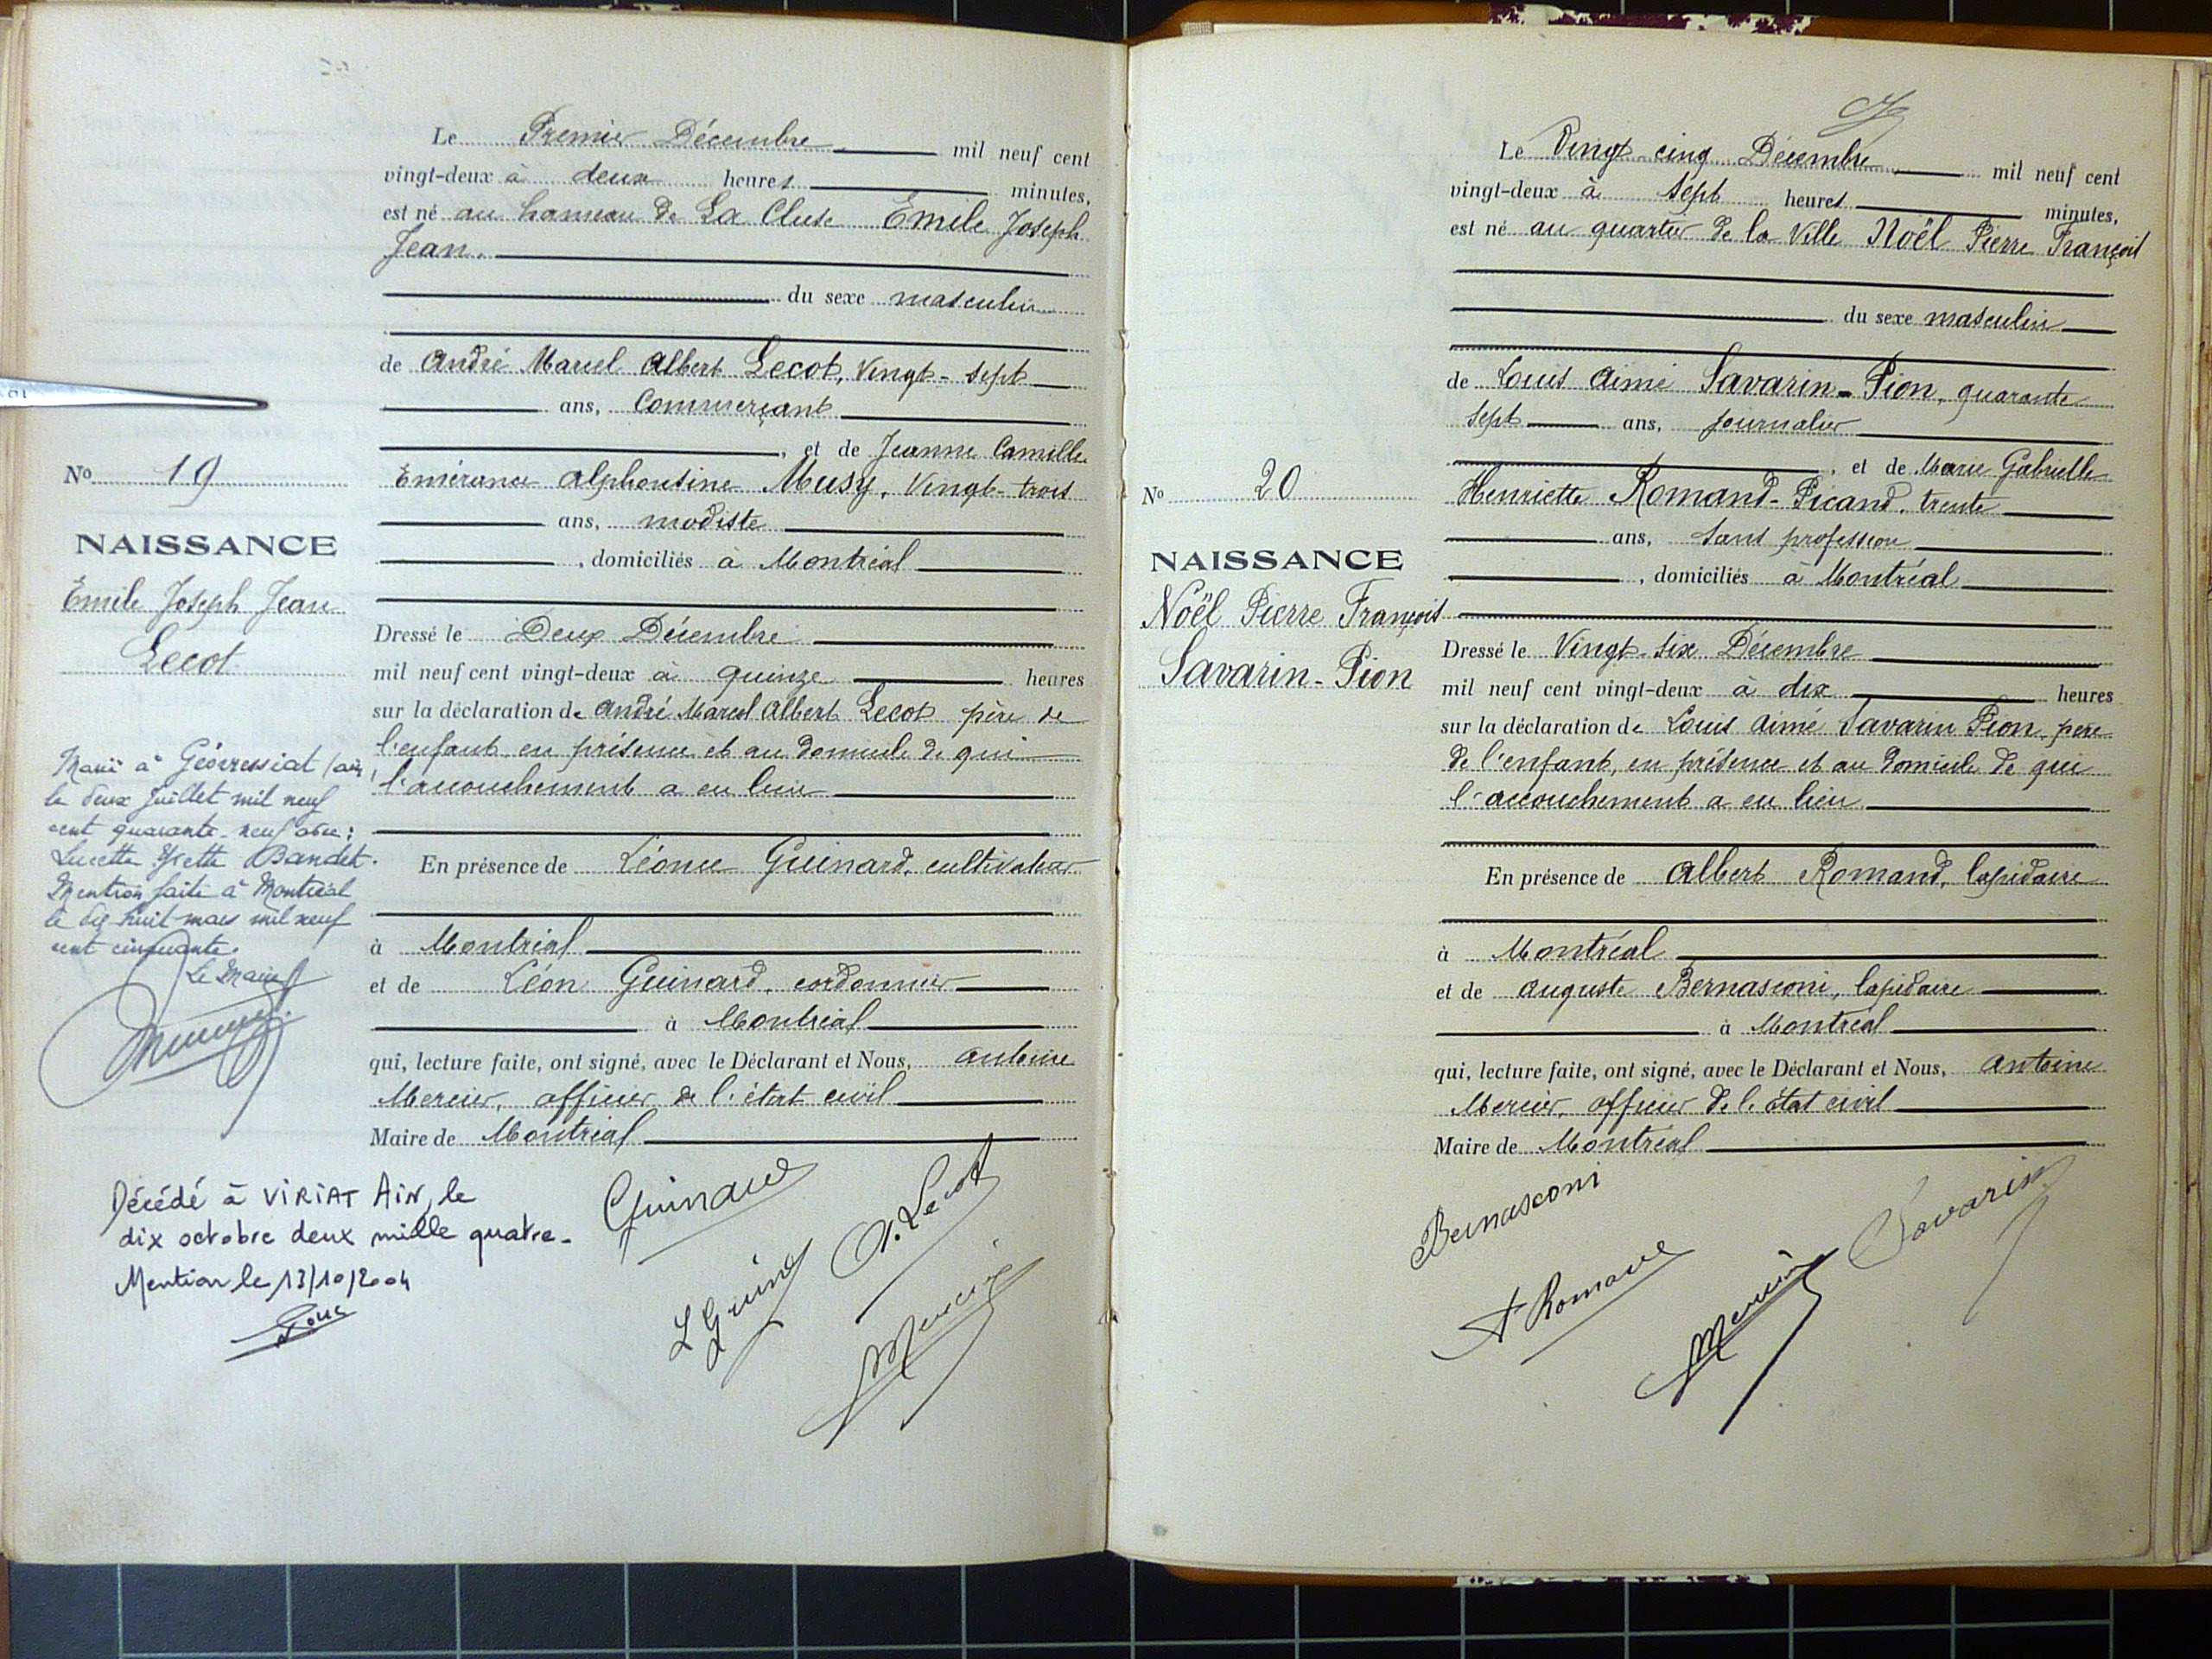 Le Premier Décembre mil neuf cent
vingt-deux à deux heures minutes,
est né au hameau de La Cluse Emile Joseph
Jean.
du sexe masculin
de André Marcel Albert Lecot, Vingt-sept
ans, Commerçant
, et de Jeanne Camille
Emérance Alphonsine Musy, Vingt-trois
ans, modiste
, domiciliés à Montréal
Dressé le Deux Décembre
mil neuf cent vingt-deux à quinze heures
sur la déclaration de André Marcel Albert Lecot père de
l'enfant, en présence et au domicile de qui
l'accouchement a eu lieu
En présence de Léonce Guinard, cultivateur
à Montréal
et de Léon Guinard, cordonnier
à Montréal
qui, lecture faite, ont signé, avec le Déclarant et Nous, Antoine
Mercier, officier de l'état civil
Maire de Montréal
Guinard
A. Lecot
L Guinard
Mercier
No 19
NAISSANCE
Emile Joseph Jean
Lecot
Marié à Géovressiat (Ain)
le deux Juillet mil neuf
cent quarante-neuf avec:
Lucette Yvette Bandet.
Mention faite à Montréal
le dix-huit mars mil neuf
cent cinquante.
Le Maire
Décédé à VIRIAT AIN, le
dix octobre deux mille quatre-
Mention le 13/10/2004
Le Vingt-cinq Décembre mil neuf cent
vingt-deux à sept heures minutes,
est né au quartier de la Ville Noël Pierre François
du sexe masculin
de Louis Aimé Savarin-Pion, quarante
sept ans, journalier
, et de Marie Gabrielle
Henriette Romand-Picand, trente
ans, sans profession
, domiciliés à Montréal
Dressé le Vingt-six Décembre
mil neuf cent vingt-deux à dix heures
sur la déclaration de Louis Aimé Savarin Pion, père
de l'enfant, en présence et au domicile de qui
l'accouchement a eu lieu
En présence de Albert Romand, lapidaire
à Montréal
et de Auguste Bernasconi, lapidaire
à Montréal
qui, lecture faite, ont signé, avec le Déclarant et Nous, Antoine
Mercier, officier de l'état civil
Maire de Montréal
Bernasconi
Savarin
A Romand
Mercier
No 20
NAISSANCE
Noël Pierre François
Savarin-Pion